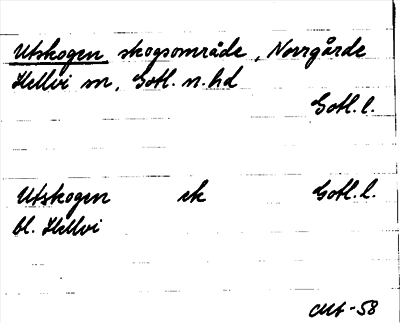 Utskogen, skogsområde, Norrgårde
Hellvi sn, Gotl. n. hd
Gotl. l.
Utskogen ek Gotl. l.
bl. Hellvi
-58